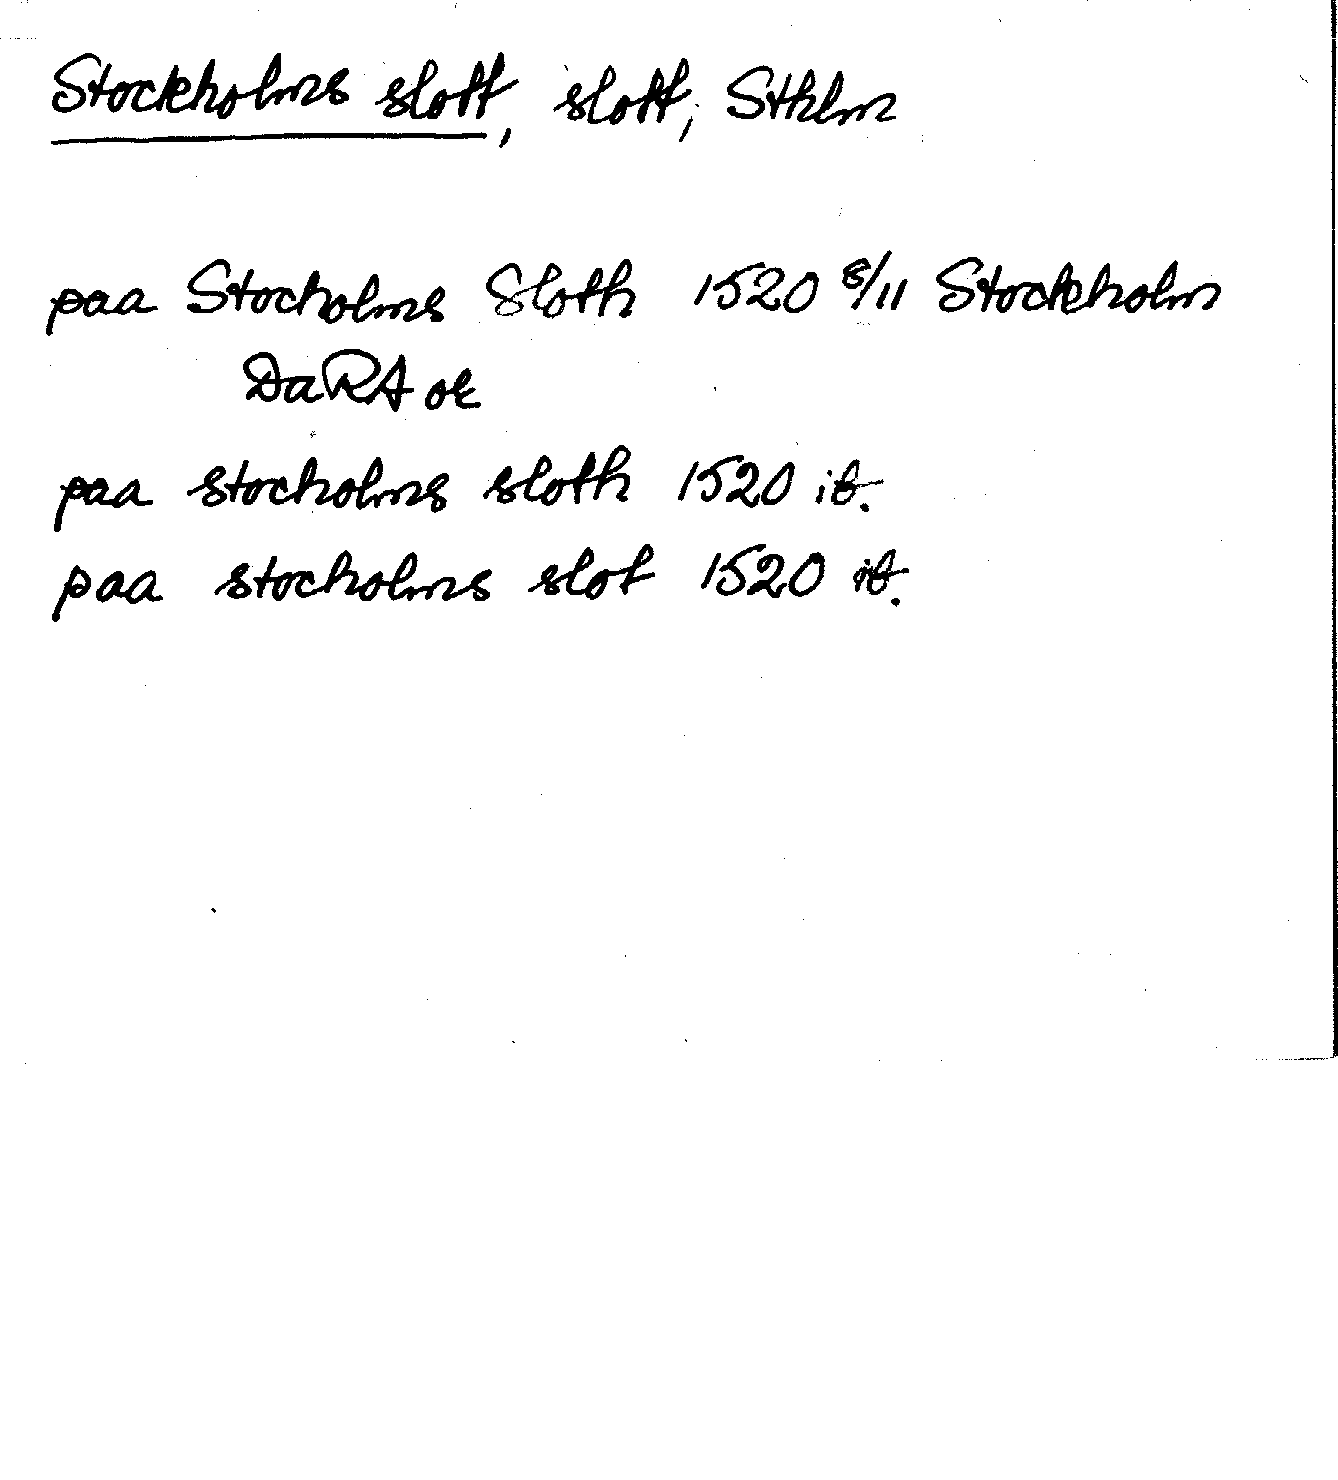 Stockholms slott, slott, Sthlm
paa Stocholms Sloth 1520 8/11 Stockholm
DaRA ok
paa stocholms sloth 1520 ib.
paa stocholms slot 1520 ib.